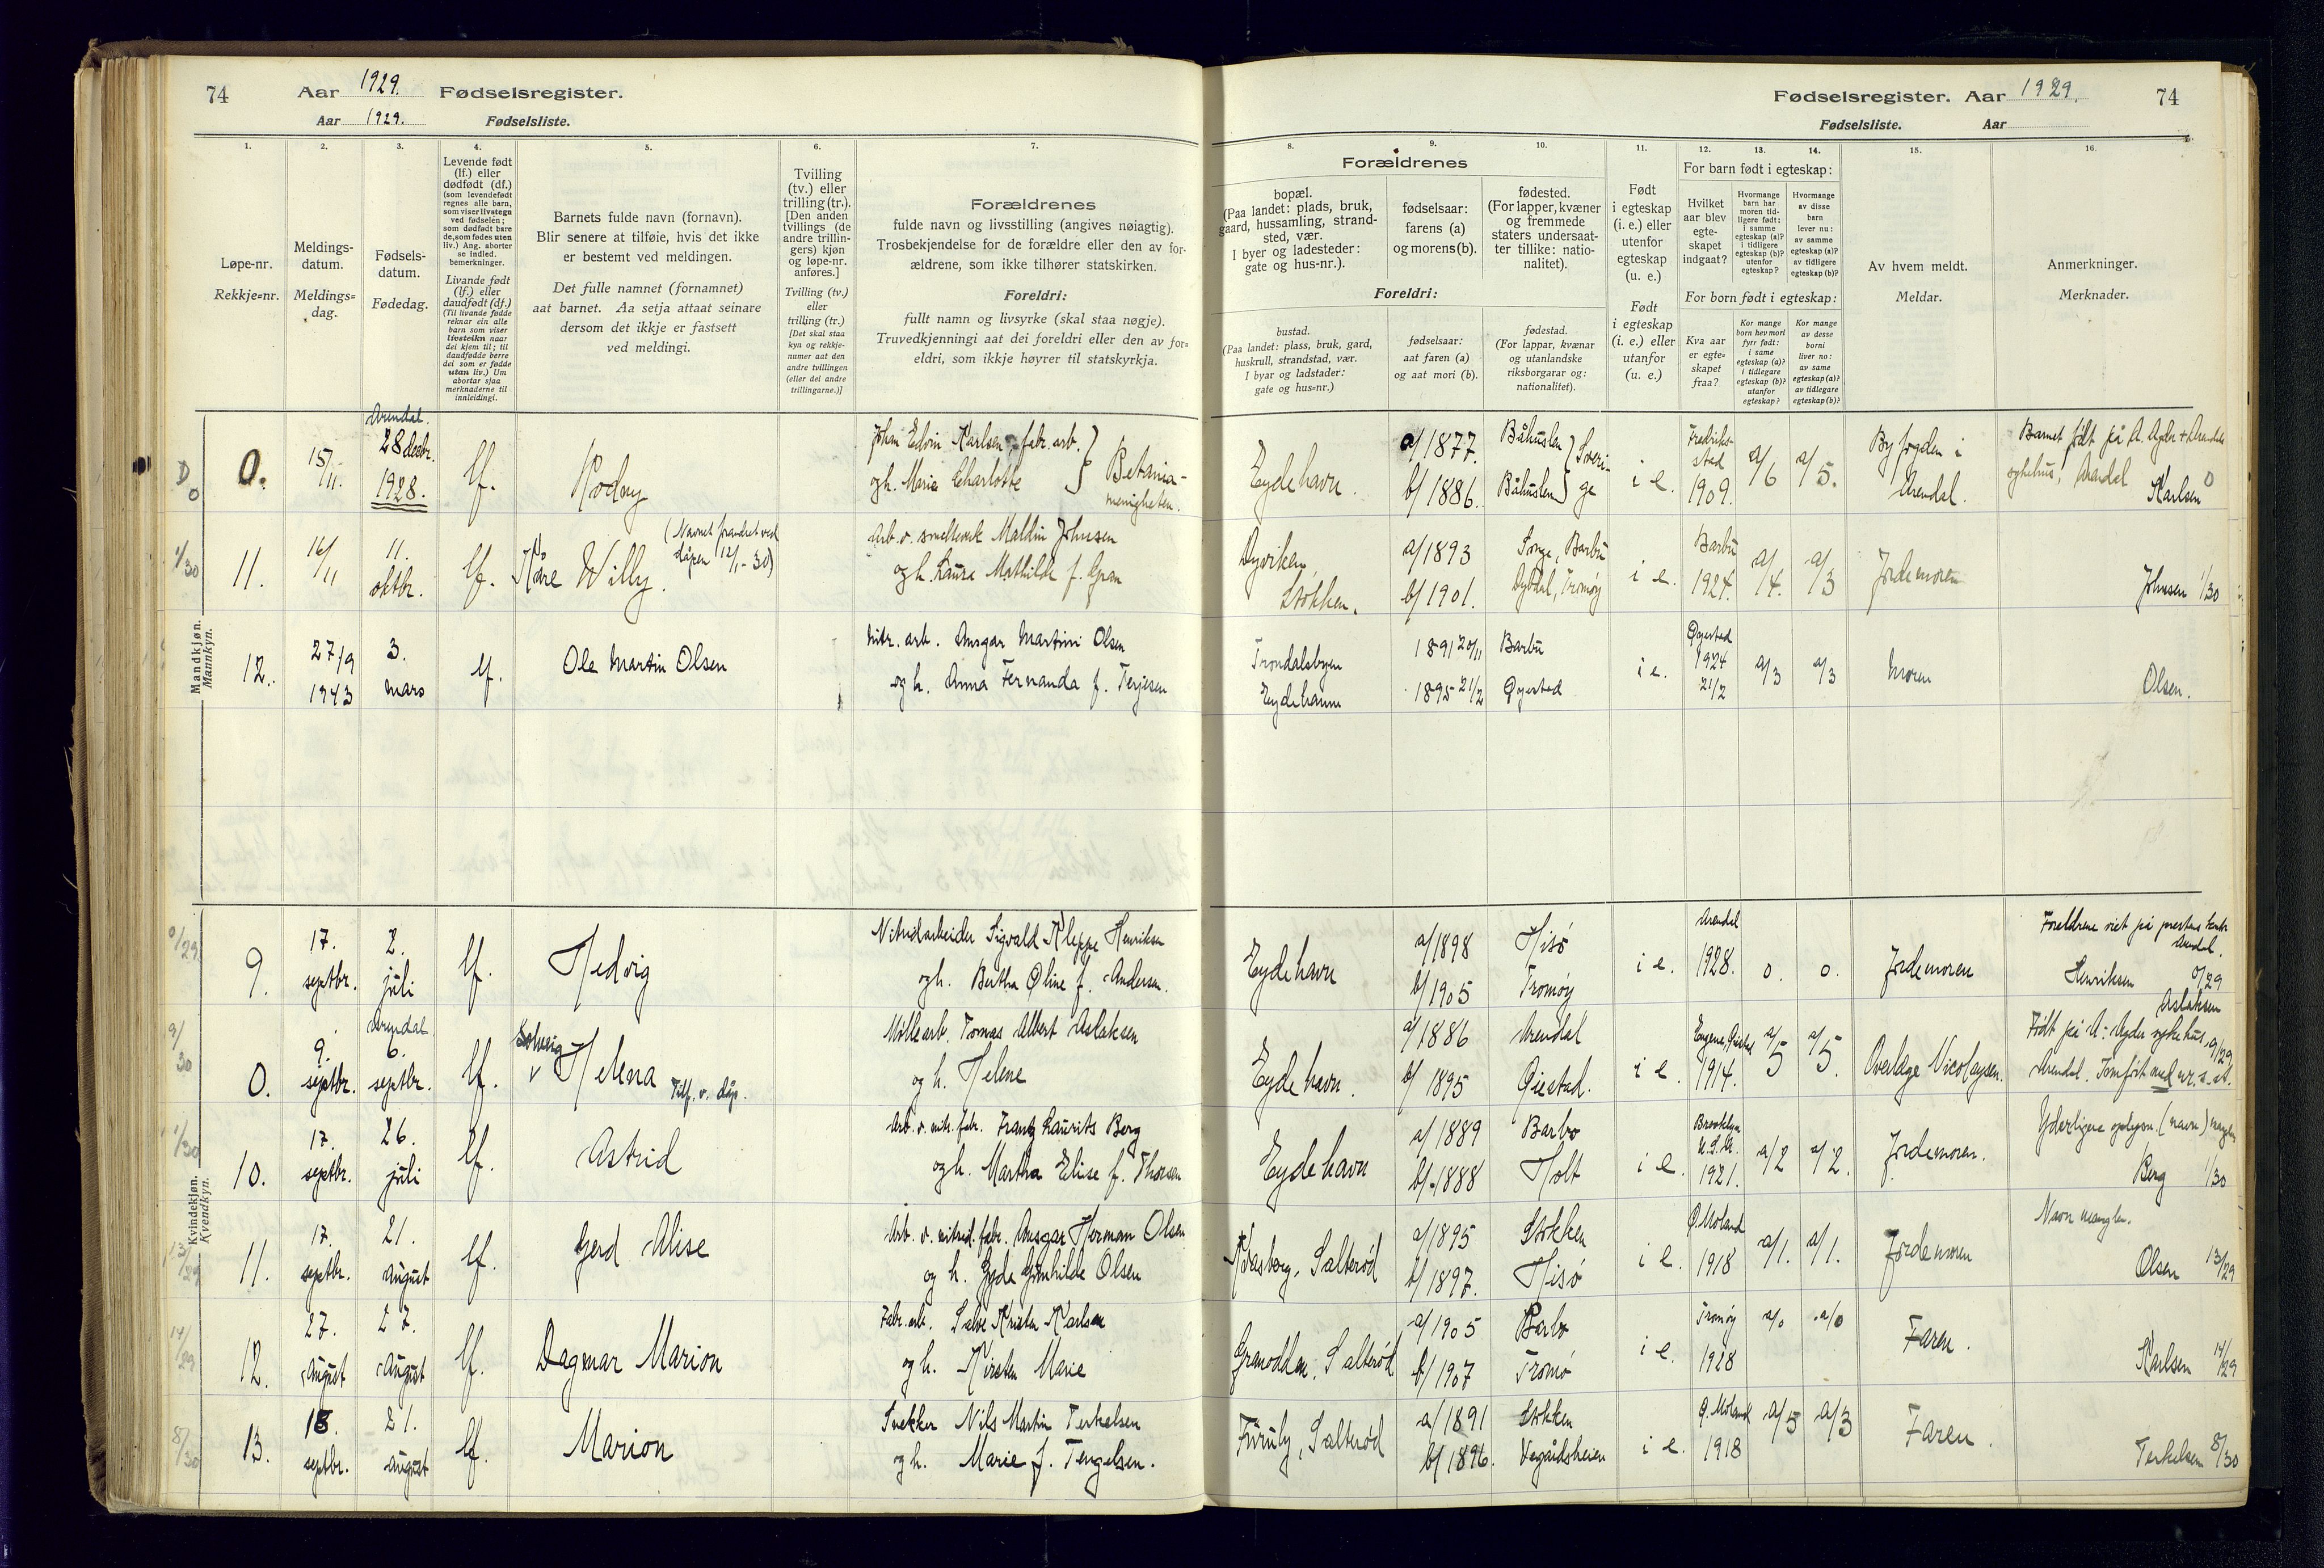 74 Aar 1929. Fødselsregister.
Aar 1929. Fødselsliste.
1. 2. 3. 4. 5. 6. 7.
Løpe-nr.
Rekkje=nr.
Meldings-
datum.
Meldings=
dag.
Fødsels-
datum.
Fødedag.
Levende født
(lf.) eller
dødfødt (df.)
(som levendefødt
regnes alle barn,
som viser livstegn
ved fødselen;
som dødfødt bare
de, som fødes uten
liv.) Ang. aborter
se indled.
bemerkninger.
Livande født
(lf.) eller
daudfødt (df.)
(Til livande fødde
reknar ein alle
born som viser
livsteikn naar
dei kjem til; til
daudfødde berre
dei som er fødde
utan liv.) Um
abortar sjaa
merknaderne til
innleidingi.
Barnets fulde navn (fornavn).
Blir senere at tilføie, hvis det ikke
er bestemt ved meldingen.
Det fulle namnet (fornamnet)
aat barnet. Aa setja attaat seinare
dersom det ikkje er fastsett
ved meldingi.
Tvilling
(tv.) eller
trilling (tr.).
[Den anden
tvillings (de
andre trillin-
gers) kjøn
og løpe-nr.
anføres.]
Tvilling (tv.)
eller
trilling (tr.)
[Det skal staa
kyn og rekkje-
numer aat den
andre tvillingen
(eller dei andre
trillingarne.)]
Forældrenes
fulde navn og livsstilling (angives nøiagtig).
Trosbekjendelse for de forældre eller den av for-
ældrene, som ikke tilhører statskirken.
Foreldri:
fullt namn og livsyrke (skal staa nøgje).
Truvedkjenningi aat dei foreldri eller den av for=
eldri, som ikkje høyrer til statskyrkja.
Fødselsregister. Aar 1929. 74
Fødselsliste. Aar
8. 9. 10. 11. 12. 13. 14. 15. 16.
Forældrenes
bopæl.
(Paa landet: plads, bruk,
gaard, hussamling, strand-
sted, vær.
I byer og ladesteder:
gate og hus-nr.).
fødselsaar:
farens (a)
og morens (b).
fødested.
(For lapper, kvæner
og fremmede
staters undersaat-
ter tillike: natio-
nalitet).
Foreldri:
bustad.
(Paa landet: plass, bruk, gard,
huskrull, strandstad, vær.
I byar og ladstader:
gate og hus=nr.)
fødselsaar:
aat faren (a)
og aat mori (b).
fødestad.
(For lappar, kvænar
og utanlandske
riksborgarar og:
nationalitet).
Født
i egteskap
(i. e.) eller
utenfor
egteskap
(u. e.)
Født
i egteskap
(i. e.) eller
utanfor
(u. e.)
For barn født i egteskap:
Hvilket
aar blev
egte-
skapet
indgaat?
Hvormange
barn har
moren tid-
ligere født:
i samme
egteskap (a)?
i tidligere
egteskap (b)?
utenfor
egteskap?
Hvormange
av disse
barn
lever nu:
av samme
egteskap (a)?
av tidligere
egteskap (b)?
For born født i egteskap:
Kva aar
er egte-
skapet
fraa?
Kor mange
born hev mori
fyrr født:
i same
egteskap (a)?
i tidlegare
egteskap (b)?
utanfor
egteskap?
Kor mange
av desse
borni
liver no:
av same
egteskap (a)?
av tidlegare
egteskap (b)?
Av hvem meldt.
Meldar.
Anmerkninger.
Merknader.
Mandkjøn.
Mannkyn.
0. 15/11. Arendal. 28 decbr. 1928. lf. Rodny
Johan Edvin Karlsen, fabr. arb.
og h. Marie Charlotte } Betania-
menigheten.
Eydehavn. a/1877. b/1886. Båhuslen Båhuslen } Sveri-
ge
i e. Fredrik-
stad
1909. a/6 a/5. Byfogden i
Arendal.
Barnet født på A. Agder
sykehus, Arendal Karlsen 0
1/30 11. 16/11 11. oktbr. lf. Kåre Willy.
(Navnet forandret ved
dåpen 12/1-30)
Arb. v. smelteverk Maldin Johnsen
og h. Laura Mathilde f. Gran
Dyviken,
Stokken. a/1893 b/1901. Songe, Barbu
Dybdal, Tromøy i e. Barbu
1924. a/4. a/3 Jordemoren Johnsen 1/30
12. 27/9 1943 3. mars lf. Ole Martin Olsen
nitr. arb. Ansgar Martini Olsen
og h. Anna Fernanda f. Terjesen
Trondalsbyen
Eydehavn 1891 20/11 1895 21/2 Barbu
Øyestad i e. Øyestad
1924
21/2 a/3 a/3 Moren Olsen.
Kvindekjøn.
Kvendkyn.
9. 17. septbr. 2. juli lf. Hedvig
Nitridarbeider Sigvald Kleppe Henriksen
og h. Bertha Oline f. Andersen.
Eydehavn a/1898 b/1905 Hisø
Tromøy i e. Arendal
1928. 0. 0. Jordemoren
Foreldrene viet på prestens kontor
Arendal.
Henriksen 0/29
9/30 0. 9. septbr. Arendal 6. septbr. lf. Solveig
Helena Tilf. v. dåp.
Møllearb. Tomas Albert Aslaksen
og h. Helene
Eydehavn. a/1886 b/1895 Arendal
Øiestad. i e. 1914. a/5 a/5. Overlæge Nicolaysen.
Aslaksen
Født på A.-Agder sykehus, 9/29
Arendal.
1/30 10. 17. septbr. 26. juli lf. Astrid
Arb. v. nitr. fabr. Frantz Laurits Berg
og h. Martha Elise f. Thorsen
Eydehavn a/1889 b/1888 Barbo
Holt i e. Brooklyn
U.S.A.
1921. a/2 a/2. Jordemoren.
Yderligere oplysn. (navn)
Berg 1/30
13/29 11. 17. septbr. 21. August lf. Gerd Alise
Arb. v. nitrid. fabr. Ansgar Herman Olsen
og h. Gyda Gunhilde Olsen
Salterød a/1895 b/1897. Stokken
Hisø i e. Ø. Moland
1918 a/1. a/1. Jordemoren
Navn mangler.
Olsen 13/29
14/29 12. 27. August 27. August lf. Dagmar Marion
Fabr. arb. Salve Kristen Karlsen
og h. Kirsten Marie
Granodden, Salterød a/1905 b/1907 Barbo
Tromø i e. Tromøy
1928 a/0 a/0 Faren. Karlsen 14/29
8/30 13. 18. septbr. 21. August lf. Marion
Snekker Nils Martin Terkelsen
og h. Marie f. Tengelsen.
Furuly, Salterød a/1891 b/1896. Stokken
Vegårdsheien i e. Ø. Moland
1918 a/5 a/3 Faren. Terkelsen 8/30